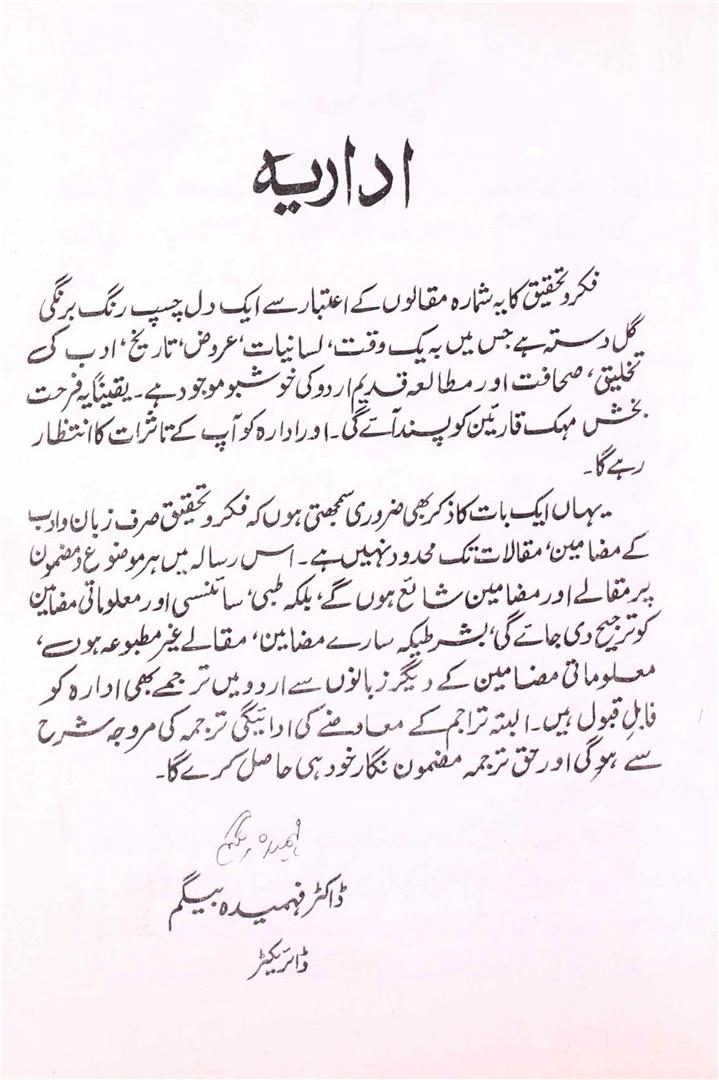 اداریہ
فکر و تحقیق کا یہ شمارہ مقالوں کے اعتبار سے ایک دل چسپ رنگ برنگی
گل دستہ ہے جس میں بہ یک وقت، لسانیات، عروض، تاریخ، ادب کی
تخلیق، صحافت اور مطالعہ قدیم اردو کی خوشبو موجود ہے۔ یقیناً یہ فرحت
بخش مہک قارئین کو پسند آئے گی۔ اور ادارہ کو آپ کے تاثرات کا انتظار
رہے گا۔
یہاں ایک بات کا ذکر بھی ضروری سمجھتی ہوں کہ فکر و تحقیق صرف زبان و ادب
کے مضامین، مقالات تک محدود نہیں ہے۔ اس رسالہ میں ہر موضوع و مضمون
پر مقالے اور مضامین شائع ہوں گے، بلکہ طبی، سائنسی اور معلوماتی مضامین
کو ترجیح دی جائے گی، بشرطیکہ سارے مضامین، مقالے غیر مطبوعہ ہوں،
معلوماتی مضامین کے دیگر زبانوں سے اردو میں ترجمے بھی ادارہ کو
قابلِ قبول ہیں۔ البتہ تراجم کے معاوضے کی ادائیگی ترجمہ کی مروجہ شرح
سے ہوگی اور حق ترجمہ مضمون نگار خود ہی حاصل کرے گا۔
فہمیدہ بیگم
ڈاکٹر فہمیدہ بیگم
ڈائریکٹر